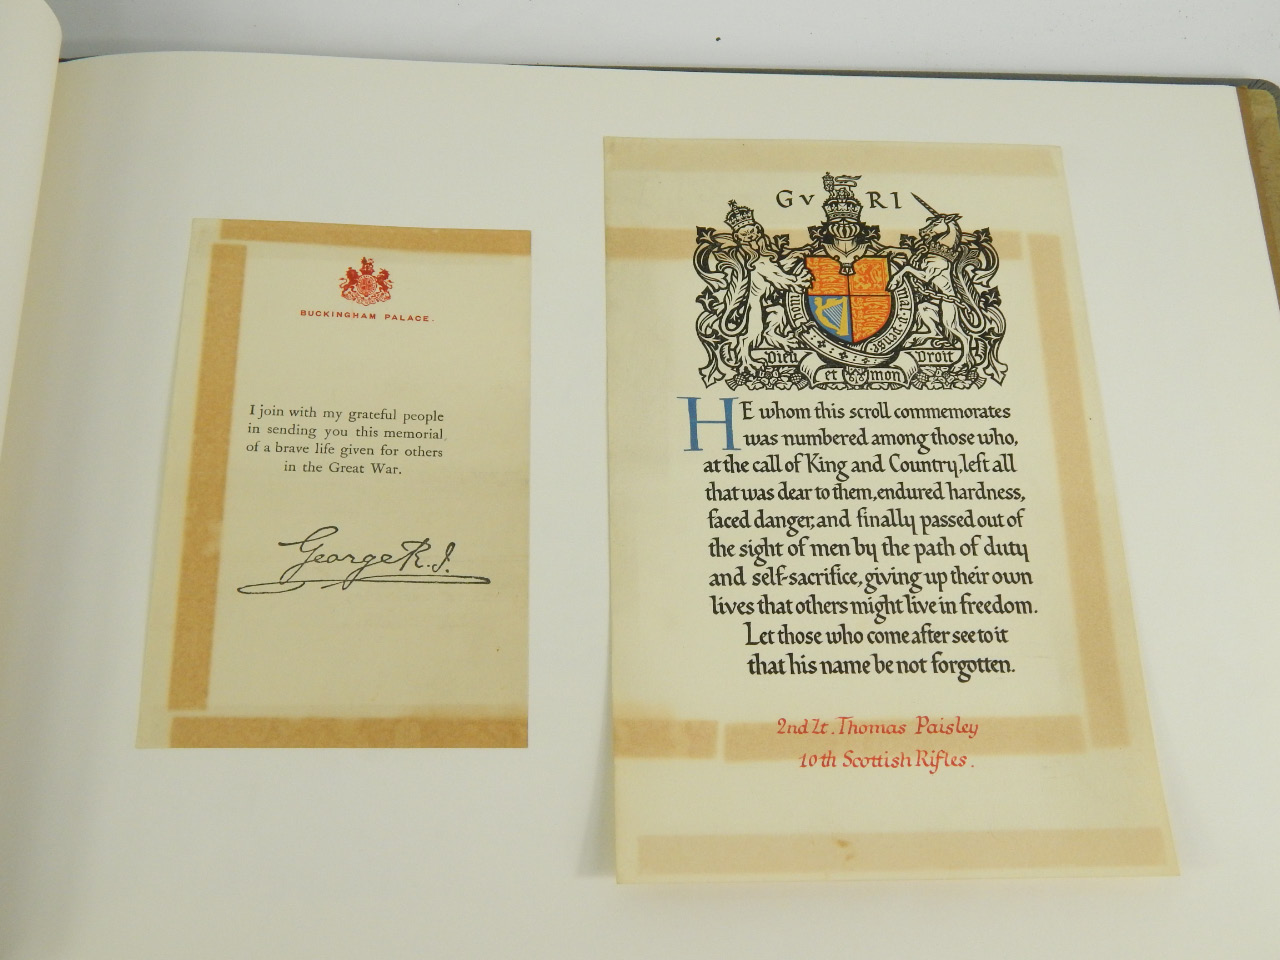 BUCKINGHAM PALACE.
I join with my grateful people
in sending you this memorial
of a brave life given for others
in the Great War.
George R.I.
GV RI
Dieu et mon Droit
HE whom this scroll commemorates
was numbered among those who,
at the call of King and Country, left all
that was dear to them, endured hardness,
faced danger, and finally passed out of
the sight of men by the path of duty
and self-sacrifice, giving up their own
lives that others might live in freedom.
Let those who come after see to it
that his name be not forgotten.
2nd Lt. Thomas Paisley
10th Scottish Rifles.